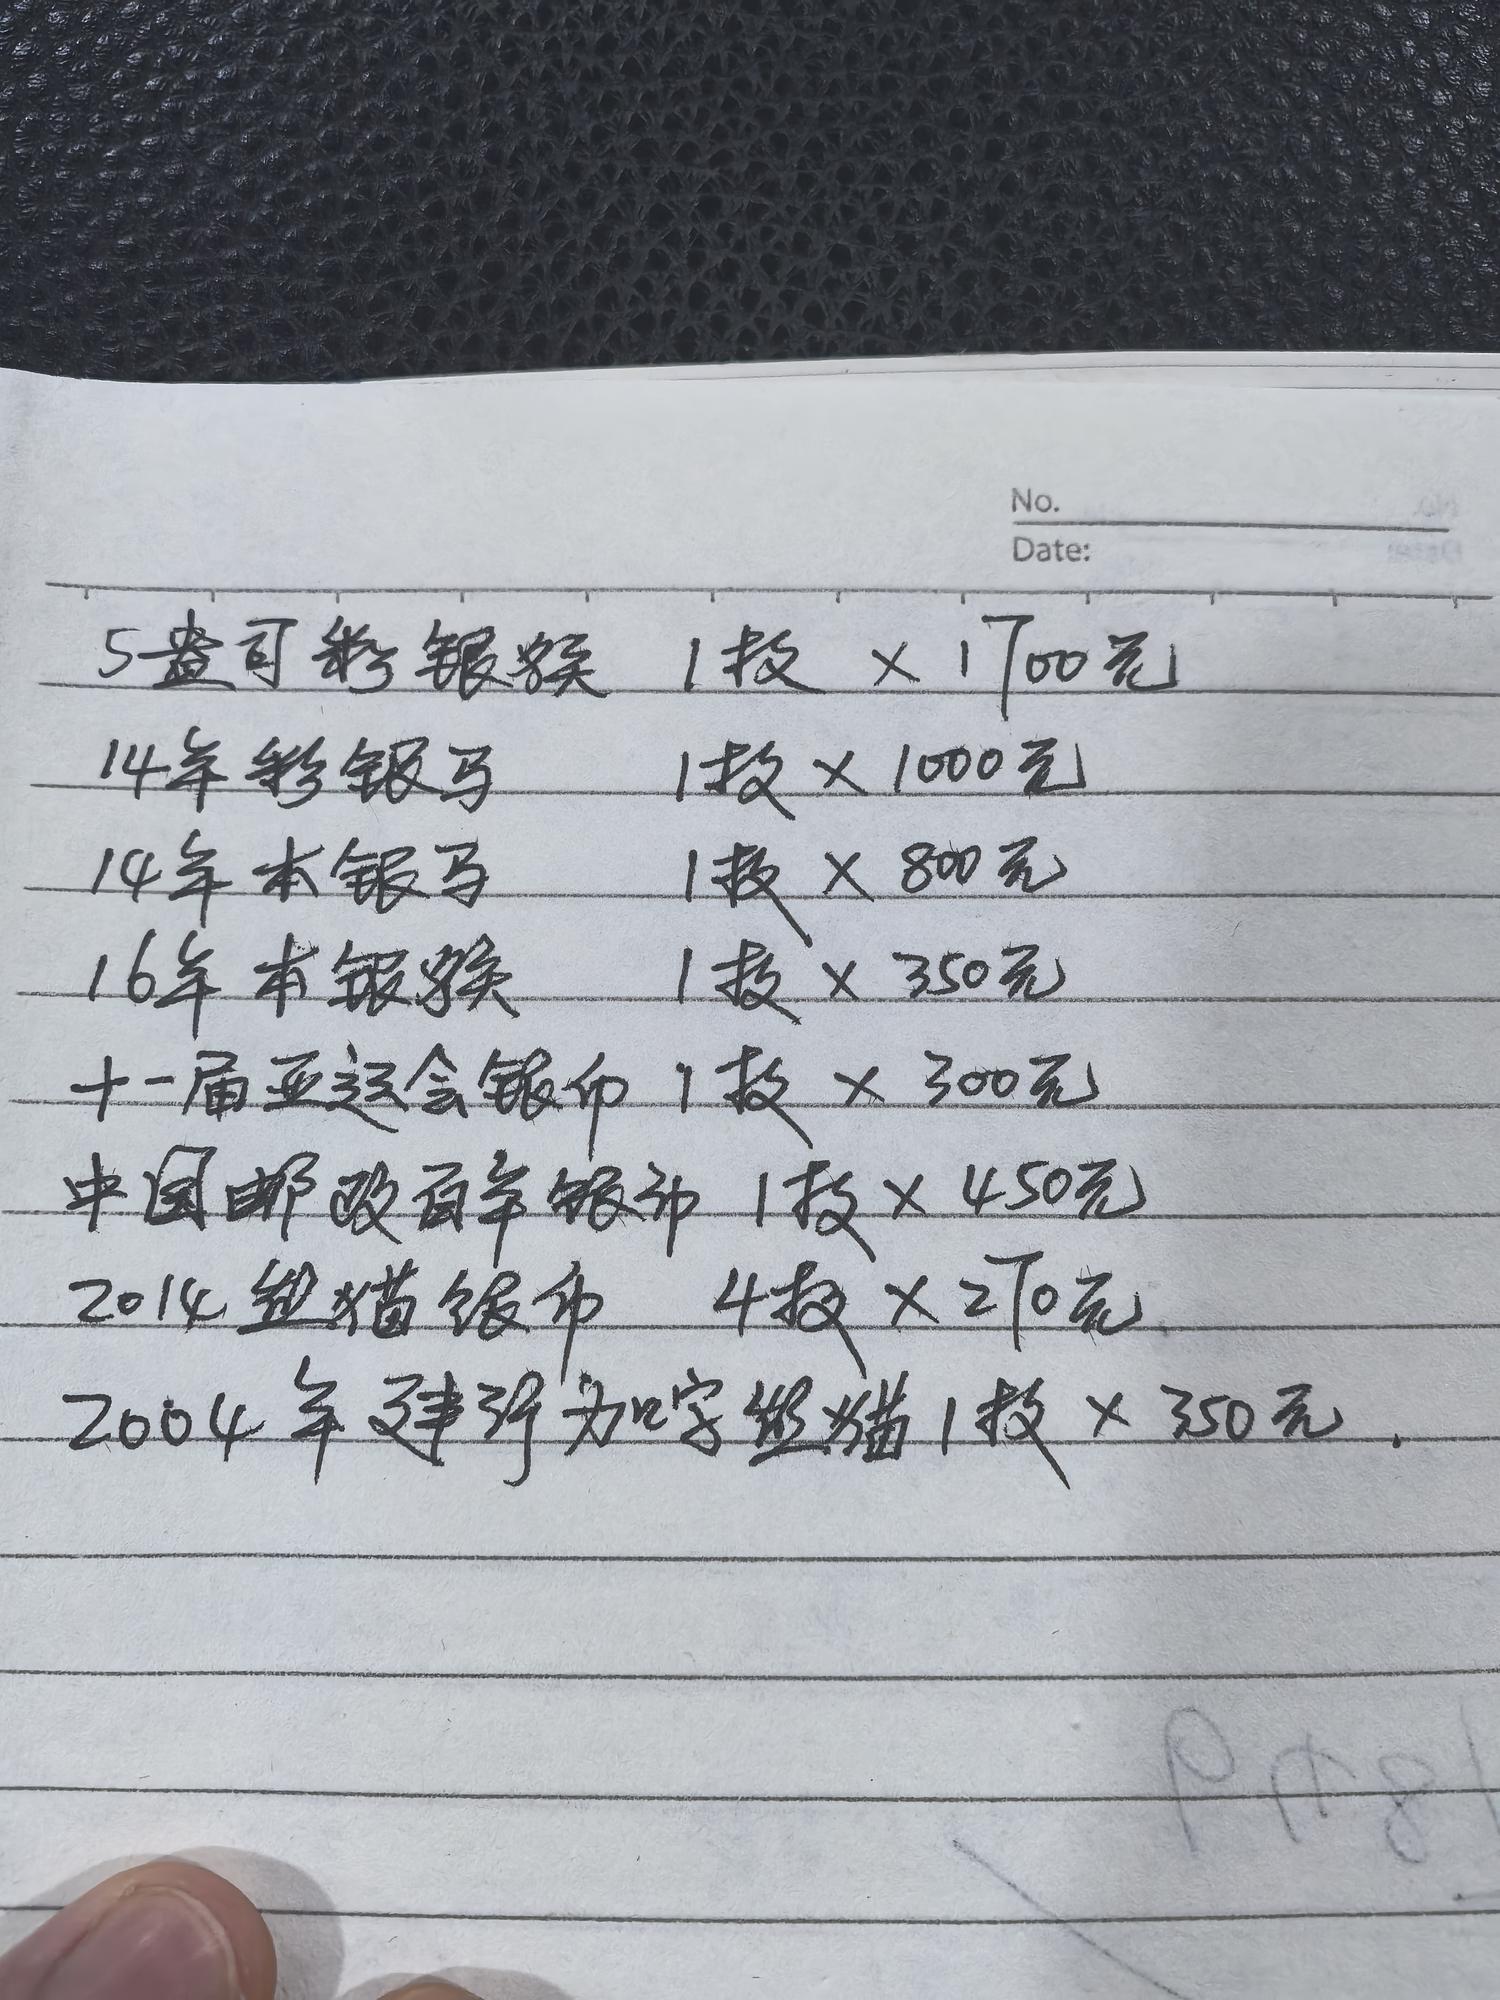 No.
Date:
5盎司彩银猴 1枚 × 1700元
14年彩银马 1枚 × 1000元
14年本银马 1枚 × 800元
16年本银猴 1枚 × 350元
十一届亚运会银币 1枚 × 300元
中国邮政百年银币 1枚 × 450元
2014 熊猫银币 4枚 × 270元
2004年建行加字熊猫 1枚 × 350元.